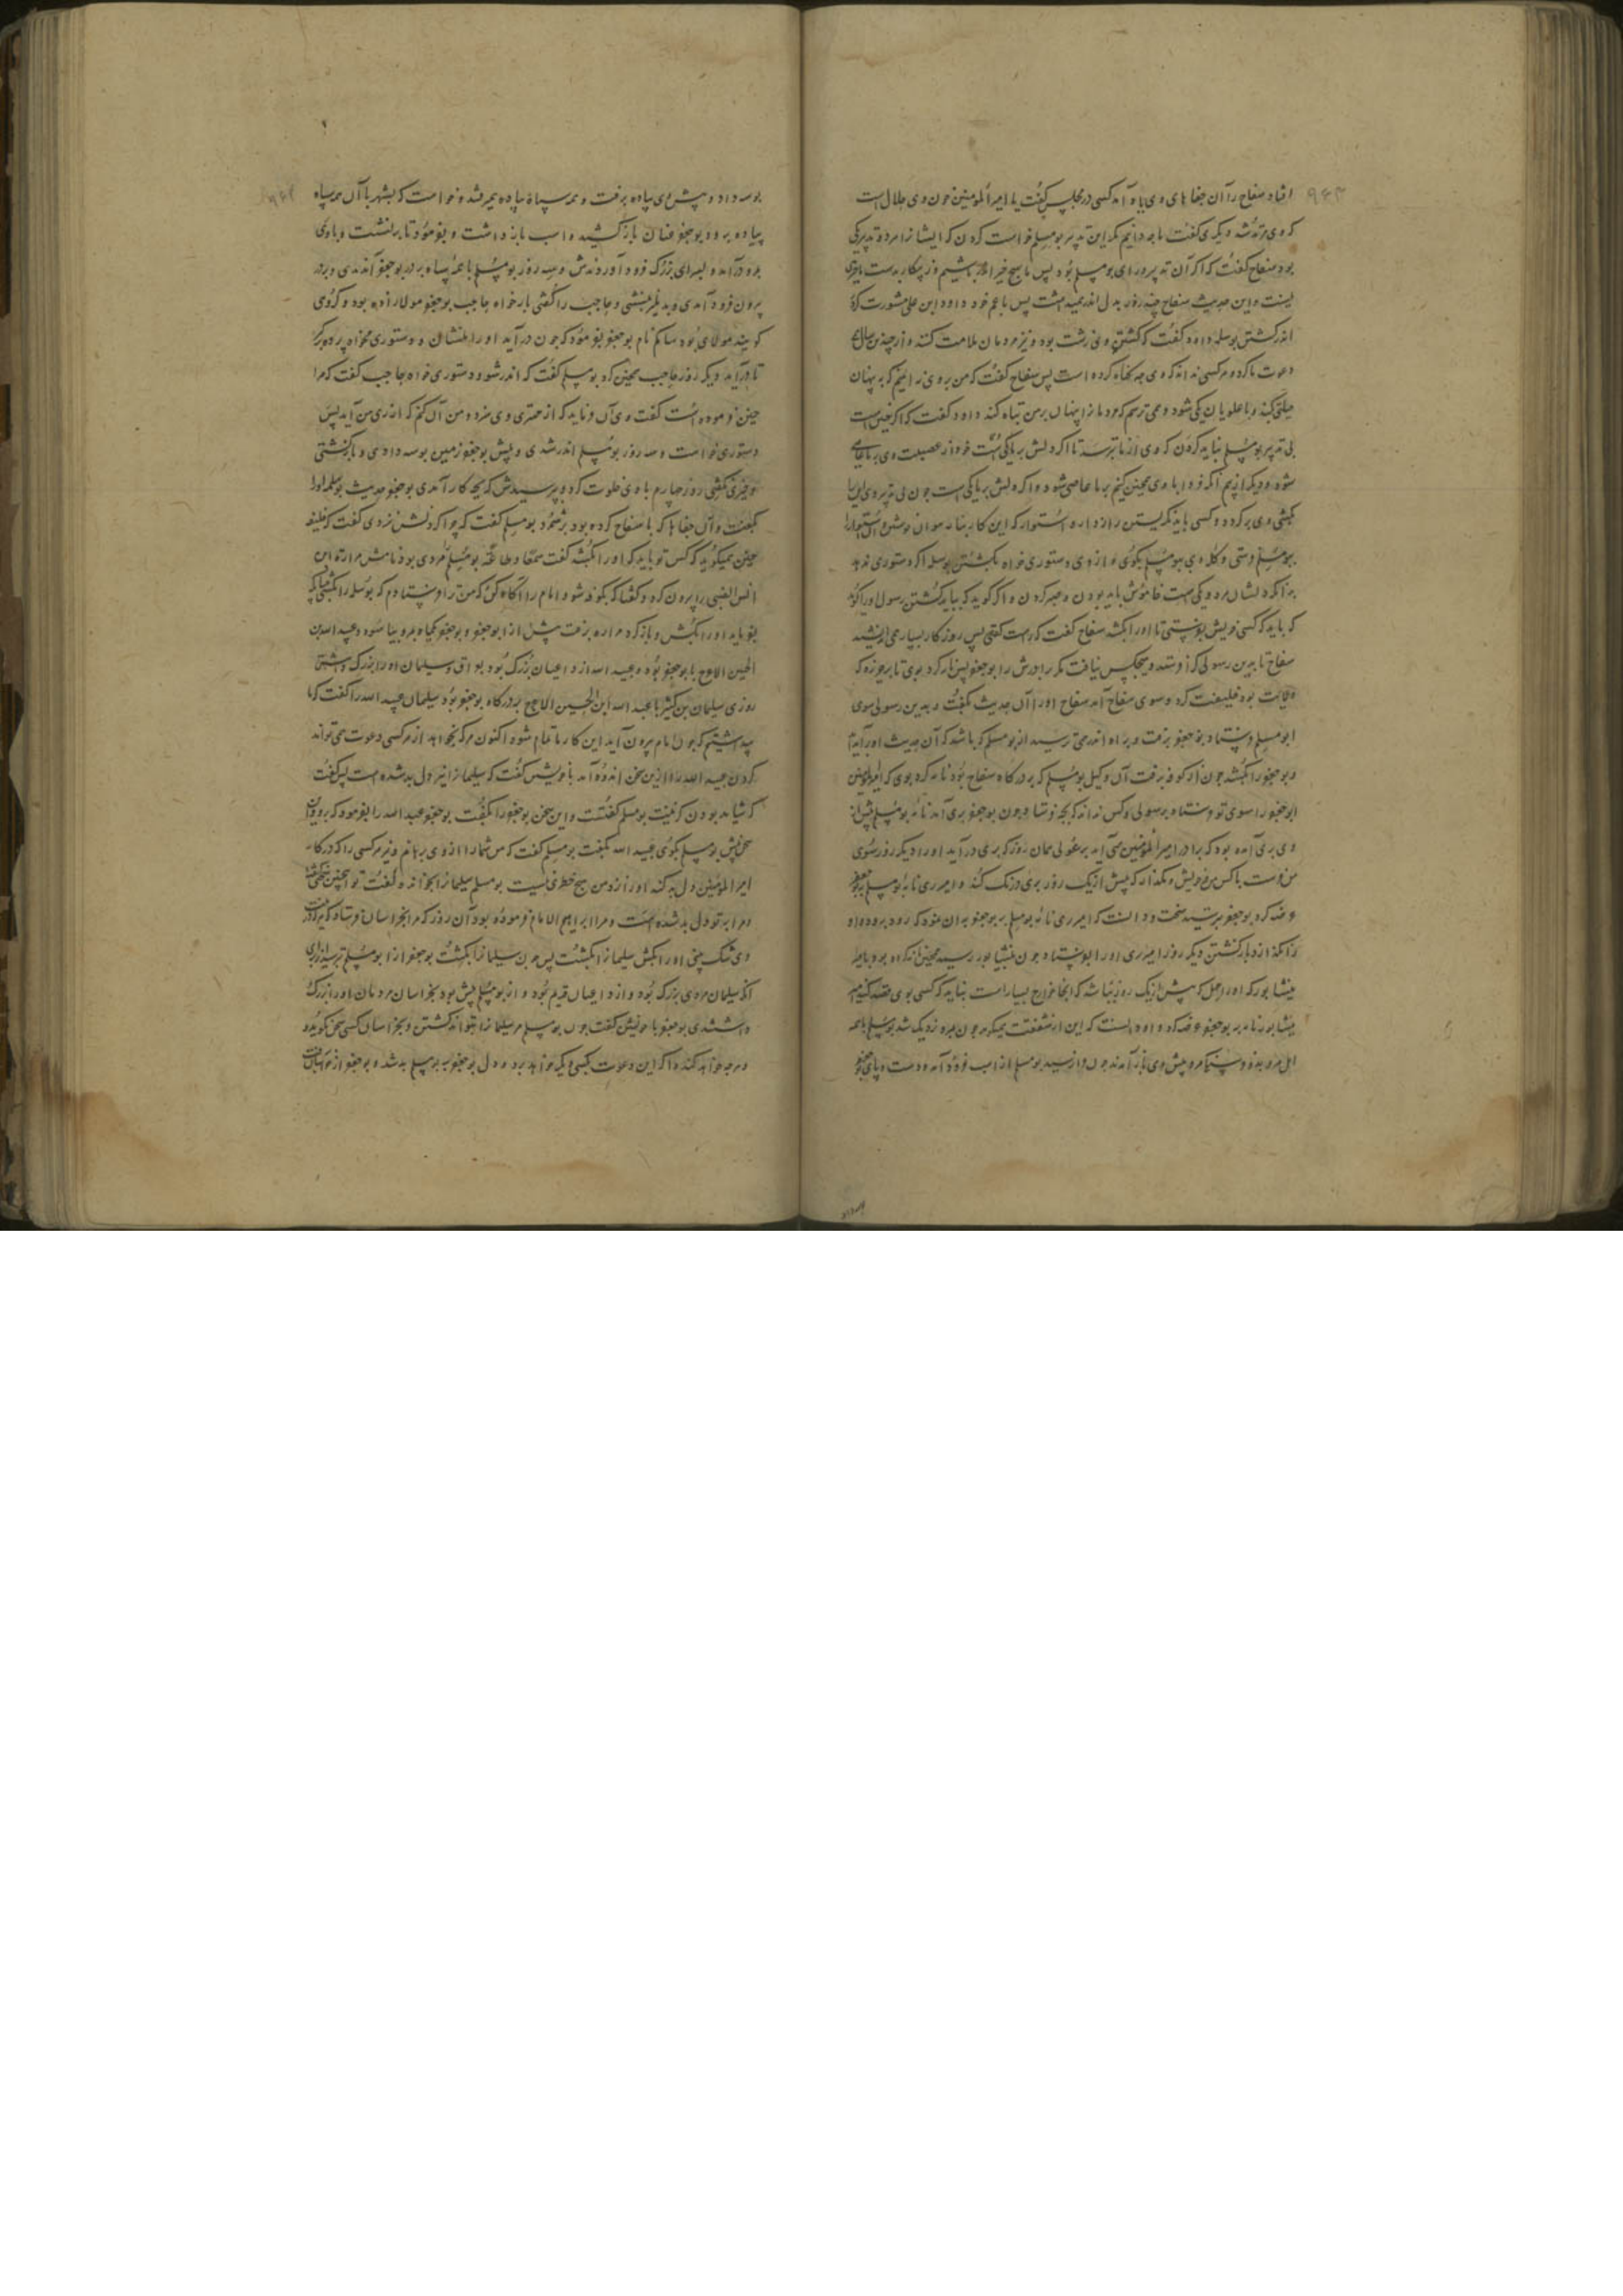 افتاد سفاح را آن جفاهای وی یاد آمد کسی در مجلس گفت یا امیر المومنین خون وی حلال است
که وی مرتد شد دیگری گفت ما چه دانیم مگر این تدبیر بومسلم خواست کردن که ایشانرا مرد و تدبیرکی
بود سفاح گفت که اگر آن تدبیر و رای بومسلم بود پس ما بهیچ چیز اندر نباشیم و پیکار بدست
نیست و این حدیث سفاح چند روز بدل اندر همی داشت پس با عم خود داود ابن علی مشورت کرد
اندر کشتن بوسلمه داود گفت که کشتن وی زشت بود و نیز مردمان ملامت کنند و از چندین سال
دعوت ما کرد و هر کسی نداند که وی چه گناه کرده است پس سفاح گفت که من بر وی نه ایمنم که به پنهان
حیلتی کند و با علویان یکی شود و می ترسم که مردمانرا پنهان بر من تباه کند داود گفت که اگر چنین است
بی تدبیر بومسلم نباید کردن که وی از ما بترسد تا اگر دلش بر ما یکی است
شود و دیگر از بیم آنکه فردا با وی همچنین کنیم بر ما عاصی شود و اگر دلش بر ما یکی است چون بی تدبیر وی
بکشی وی برگردد و کسی باید نگریستن رازدار و استوار که این کار بنا رسولان
بومسلم فرستی و گله وی ببومسلم بگوی و از وی دستوری خواه بکشتن بوسلمه اگر دستوری ندهد
بدانکه دلشان هر دو یکی است خاموش باید بودن و صبر کردن و اگر گوید که بباید کشتن رسول او را گوید
که باید که کسی خویش بفرستی تا او را بکشد سفاح گفت که راست گفتی پس روزگار بسیار می اندیشید
سفاح تا بدین رسولی کرا فرستد و هیچکس نیافت مگر برادرش را بوجعفر پس نامه کرد بوی تا بر جزیره که
ولایت بود خلیفت کرد و سوی سفاح آمد سفاح او را آن حدیث بگفت و بدین رسولی سوی
ابو مسلم فرستاد و بوجعفر برفت و براه اندر می ترسید از بومسلم که باشد که آن حدیث
و بوجعفر را بکشد چون از کوفه برفت آن وکیل بومسلم که بر درگاه سفاح بود نامه کرد بوی که امیر المومنین
ابو جعفر را سوی تو فرستاد برسولی و کس نداند که بچه فرستاد و چون بوجعفر بری آمد نامه بومسلم پیش از
وی بری آمده بود که برادر امیر المومنین می آید بر سولی همان روز که بری در آید او را دیگر روز سوی
من فرست با کس مرد خویش و مگذار که بیش از یک روز بری درنگ کند و امیر ری نامه بومسلم بر بوجعفر
عرضه کرد بوجعفر بترسید سخت و دانست که امیر ری نامه بومسلم بر بوجعفر بدان نمود که زود برود و او
را نگذارد بازگشتن دیگر روز امیر ری او را بفرستاد و چون بنیشابور رسید همچنین نامه کرده بود بامیر
نیشابور که او را مهل که بیش از یک روز بباشد که آنجا خوارج بسیار است نباید که کسی بوی قصد کند امیر
نیشابور نامه بر بوجعفر عرضه کرد و او دانست که این از شفقت میگوید و چون بمرو نزدیک شد بومسلم با همه
اهل مرو بدو فرسنگ مرو پیش وی باز آمدند چون وارسید بومسلم از اسب فرود آمد و دست و پای بوجعفر
بوسه داد و پیش وی پیاده برفت و همه سپاه پیاده همی رفتند و خواست که بشهر با آن همه سپاه
پیاده برود بوجعفر عنان باز کشید و اسب باز داشت و بفرمود تا بر نشست و با وی
بمرو درآمد و بسرای بزرگ فرود آوردندش و سه روز بومسلم با همه سپاه بر در بوجعفر آمدندی و بر در
بیرون فرود آمدی و بدهلیز بنشستی و حاجب را گفتی بار خواه حاجب بوجعفر مولازاده بود و گروهی
گویند مولای بود سالم نام بوجعفر بفرمود که چون در آید او را بنشان و دستوری مخواه پرده برگیر
تا در آید دیگر روز حاجب همچنین کرد بومسلم گفت که اندر شو و دستوری خواه حاجب گفت که مرا
چنین فرموده است گفت وی آن فرماید که از مهتری وی سزد و من آن کنم که از من آید پس
دستوری خواست و سه روز بومسلم اندر شدی و پیش بوجعفر زمین بوسه دادی و بازگشتی
و چیزی نگفتی روز چهارم با وی خلوت کرد و پرسیدش که بچه کار آمدی بوجعفر حدیث بوسلمه او را
بگفت و آن جفاها که با سفاح کرده بود برشمرد بومسلم گفت که چرا کردنش نزدی گفت که خلیفه
چنین میگوید که کس تو باید که او را بکشد گفت سمعا و طاعة بومسلم مردی بود نامش مراد بن
انس الضبی را بیرون کرد و گفتا که بکوفه شو و امام را آگاه کن که من ترا فرستادم که بوسلمه را بکشی
بفرماید او را بکش و بازگرد مراد برفت پیش از بوجعفر و بوجعفر یکماه بمرو بیاسود و عبید الله بن
الحسین الاعرج با بوجعفر بود و عبید الله از داعیان بزرگ بود بعراق و سلیمان او را بزرگ داشتی
روزی سلیمان بن کثیر با عبید الله ابن الحسین الاعرج بر درگاه بوجعفر بود سلیمان عبید الله را گفت که ما
پنداشتیم که چون امام بیرون آید این کار ما تمام شود اکنون هر که بخواهد از هر کسی دعوت می تواند
کردن عبید الله را از این سخن اندوه آمد با خویش گفت که سلیمانرا نیز دل بد شده است پس گفت
که شاید بودن که غیبت بومسلم گفتست و این سخن بوجعفر را بگفت بوجعفر عبید الله را بفرمود که برو و این
سخن پیش بومسلم بگوی عبید الله بگفت بومسلم گفت که من شما را از وی برهانم و نیز هر کسی را که در کار
امیر المومنین دل بد کند او را نزد من هیچ خطری نیست بومسلم سلیمانرا بخواند و گفت تو همچنین میگفتی
و مرا بر تو دل بد شده است و مرا ابراهیم الامام فرموده بود آن روز که مرا بخراسان فرستاد که هر که در
وی شک بینی او را بکش سلیمانرا بکشت پس چون سلیمانرا بکشت بوجعفر از ابومسلم بترسید از برای
آنکه سلیمان مردی بزرگ بود و از داعیان قدیم بود و از بومسلم پیش بود بخراسان مردمان او را بزرگ
داشتندی بوجعفر با خویش گفت چون بومسلم مر سلیمانرا بتواند کشتن و بخراسان کسی سخن نگوید و
هر چه خواهد کند و اگر این دعوت بکسی دیگر خواهد برد و دل بوجعفر بر بومسلم بد شد و بوجعفر از مرو بازگشت